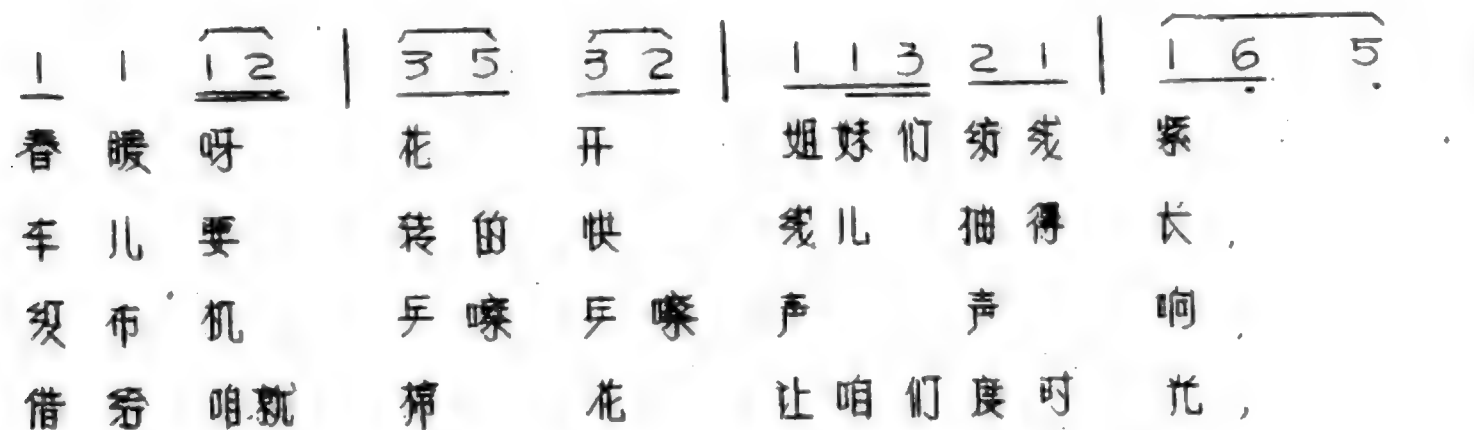 1 1 1 2 | 3 5 3 2 | 1 1 3 2 1 | 1 6 5
春 暖 呀 花 开 姐 妹 们 纺 线 紧
车 儿 要 转 的 快 线 儿 抽 得 长,
织 布 机 乒 嚓 乒 嚓 声 声 响,
借 给 咱 就 棉 花 让 咱 们 度 时 光,